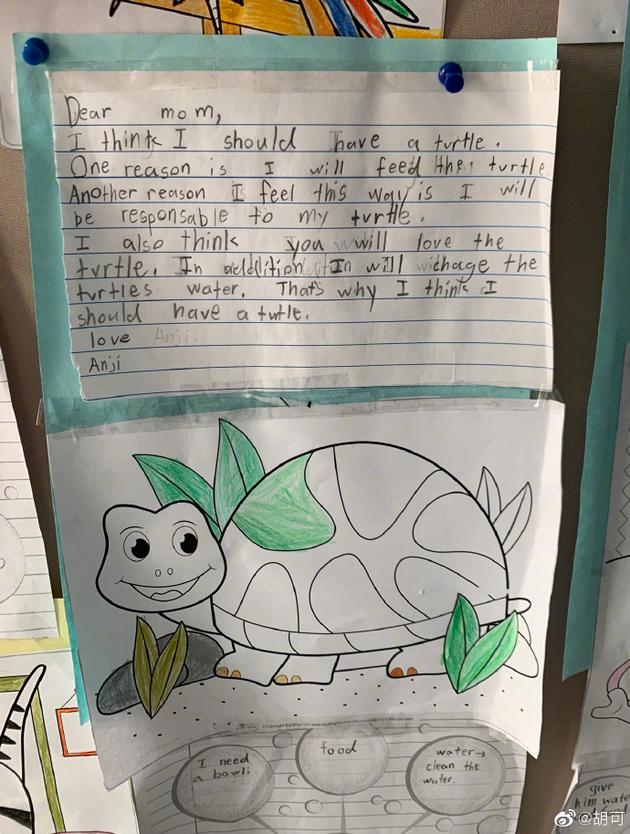 Dear mom,
I think I should have a turtle.
One reason is I will feed the turtle.
Another reason I feel this way is I will
be responsable to my turtle.
I also think you will love the
turtle. In addition I will chage the
turtles water. That's why I think I
should have a tutle.
love Anji.
Anji
I need
a bowl:
food
water→
clean the
water.
give
him wate
@胡可